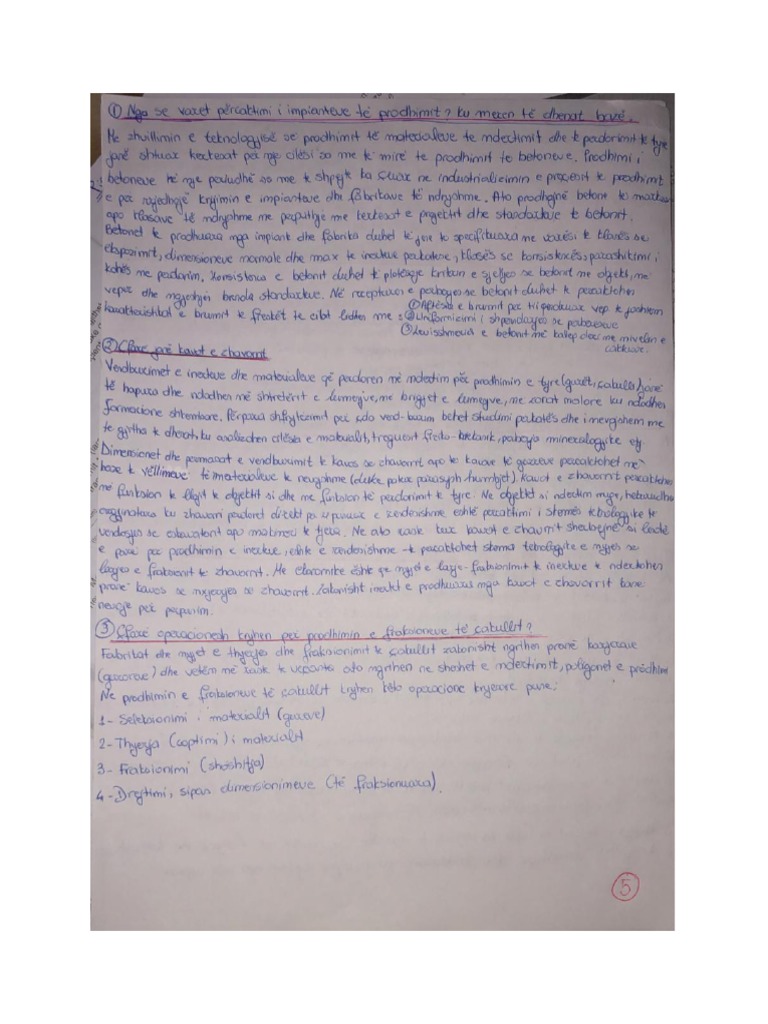 ① Nga se varet përcaktimi i impianteve të prodhimit? Ku merren të dhënat bazë.
Me zhvillimin e teknologjisë së prodhimit të materialeve te ndertimit dhe te perdorimit te tyre
janë shtuar kerkesat per nje cilësi sa me te mirë te prodhimit te betoneve. Prodhimi i
betoneve të nje sasie sa me te shpejte ka çuar ne industrializimin e procesit te prodhimit
e per rrjedhojë krijimin e impianteve dhe fabrikave të ndryshme. Ato prodhojnë betone te markave
apo klasave të ndryshme me perputhje me kerkesat e projektit dhe standarteve te betonit.
Betonet e prodhuara nga impiante dhe fabrika duhet të jene te specifikuara ne varësi te klasës se
ekspozimit, dimensioneve normale dhe max te inerteve perberese, klasës se konsistencës, parashtimi i
kohës me perdorim. Konsistenca e betonit duhet te plotësoje kriterin e sjelljes se betonit me objekt, me
vepër dhe mjeshtri brenda standardeve. Në recepturën e perbërjes se betonit duhet te percaktohen
karakteristikat e brumit te freskët te cilat lidhen me: ① Aftësia e brumit per tu perdorur vep te jashtem
② Uniformizimi i shperndarjes se perberesve
③ Levizshmëria e betonit me
② Çfarë janë kavat e zhavorrit
Vendburimet e inerteve dhe materialeve që perdoren në ndertim për prodhimin e tyre (gurët, cakullit) janë
të hapura dhe ndodhen në shtretërit e lumenjve, ne brigjet e lumenjve, ne zonat malore ku ndodhen
formacione shkembore. Përpara shfrytezimit per çdo vend-burim behet studimi paraprak dhe i mevonshem me
te gjitha te dhenat, ku analizohen cilësia e materialit, treguesit fiziko-mekanik, perberja mineralogjike etj.
Dimensionet dhe permasat e vendburimit te kaves se zhavorrit apo te kavave të gurëve percaktohet me
baze te vëllimeve të materialeve te nevojshme (duke patur parasysh humbjet) kavat e zhavorrit percaktohen
me funksion te llojit te objektit si dhe me funksion te perdorimit te tyre. Ne objektet si ndertim rruge, hekurudhe
argjinatura ku zhavorri perdoret direkt pa u perpunuar e rendesishme eshtë percaktimi i skemës teknologjike te
vendosjes se eskavatorit apo makinave te tjera. Ne ato raste kur kavat e zhavorrit sherbejne si lëndë
e parë per prodhimin e inerteve, eshte e rendesishme te percaktohet skema teknologjike e nyjes se
larjes e fraksionimit te zhavorrit. Me e favorshme eshte qe nyjet e larje-fraksionimit te inerteve te ndertohen
pranë kavës se nxjerrjes se zhavorrit. Zakonisht inertet e prodhuara nga kavat e zhavorrit kane
nevoje per perpunim.
③ Çfarë operacionesh kryhen per prodhimin e fraksioneve të cakullit?
Fabrikat dhe nyjet e thyerjes dhe fraksionimit te cakullit zakonisht ngrihen pranë karrierave
(guroreve) dhe vetëm në raste te veçanta ato ngrihen ne sheshet e ndertimit, poligonet e prodhimit
Ne prodhimin e fraksioneve të cakullit kryhen këto operacione kryesore pune:
1- Seleksionimi i materialit (gurëve)
2- Thyerja (coptimi) i materialit
3- Fraksionimi (shoshitja)
4- Drejtimi, sipas dimensionimeve (të fraksionuara).
5